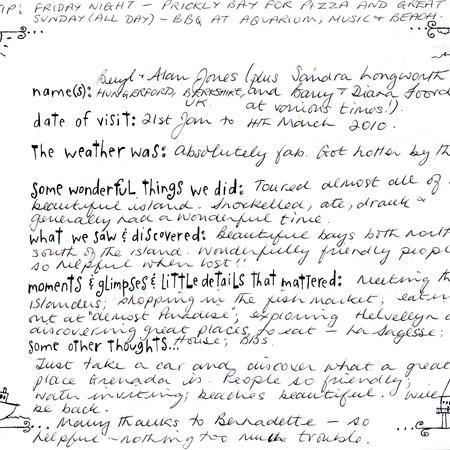 TIP: FRIDAY NIGHT - PRICKLY BAY FOR PIZZA AND GREAT
SUNDAY (ALL DAY) - BBQ AT AQUARIUM, MUSIC & BEACH.
Beryl & Alan Jones (plus Sandra Longworth
name(s): HUNGERFORD, BERKSHIRE, and Barry & Diana
UK. at various times!).
date of visit: 21st Jan to 4th March 2010.
The weather was: Absolutely fab. Got hotter by th
some wonderful things we did: Toured almost all of
beautiful island. Snorkelled, ate, drank &
generally had a wonderful time.
what we saw & discovered: Beautiful bays both north
south of the island. Wonderfully friendly peopl
so helpful when lost!!
moments & glimpses & little details that mattered: Meeting th
islanders; shopping in the fish market; eatin
out at "almost Paradise"; exploring Helvellyn a
discovering great places to eat - La Sagesse;
some other thoughts... House; BBs.
Just take a car and discover what a great
place Grenada is. People so friendly;
water inviting; beaches beautiful. Will
be back.
Many thanks to Bernadette - so
helpful - nothing too much trouble.